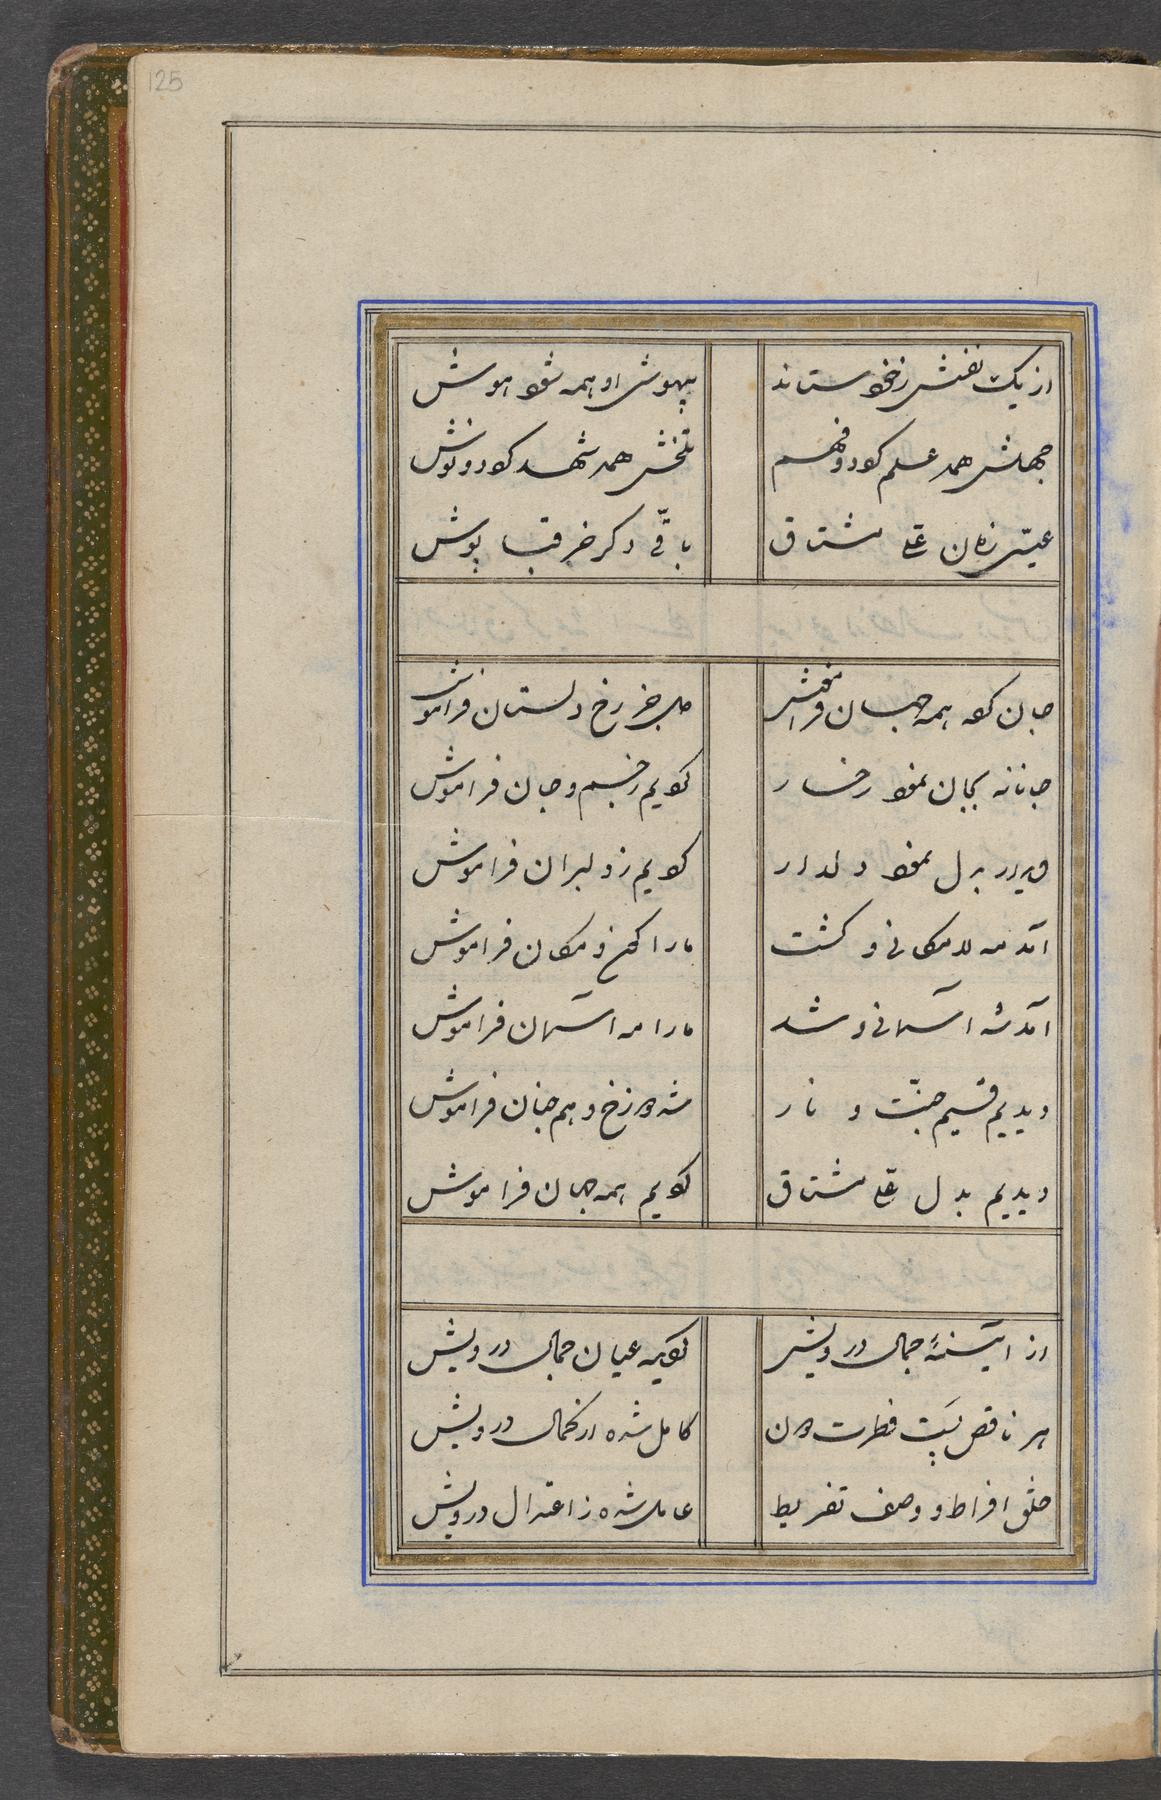 125
از یک نفسش ز خود ستاند
بیهوشی او همه شود هوش
جهلش همه علم گردد و فهم
تلخش همه شهد گردد و نوش
عیسی زمان علی مشتاق
باقی دگر خر قبا پوش
جان کرد همه جهان فراموش
جز رخ دلستان فراموش
جانانه بجان نمود رخسار
کردیم ز جسم و جان فراموش
بدل نمود دلدار
کردیم ز دلبران فراموش
آمد مه لامکانی و گشت
ما را کون و مکان فراموش
آمد شه آسمانی و شد
ما را مه آسمان فراموش
دیدیم قسیم جنّت و نار
شد دوزخ و هم جنان فراموش
دیدیم بدل علی مشتاق
کردیم همه جهان فراموش
از آیینهٔ جمال درویش
گردید عیان جمال درویش
هر ناقص پست فطرت دون
کامل شده از کمال درویش
خلق افراط و وصف تفریط
شده ز اعتدال درویش